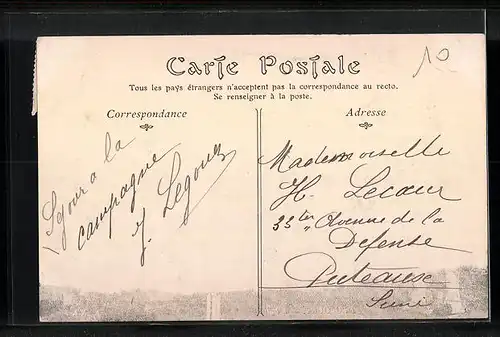 10
Carte Postale
Tous les pays étrangers n'acceptent pas la correspondance au recto.
Se renseigner à la poste.
Correspondance
Adresse
Sejour a la
campagne
J. Legoux
Mademoiselle
H. Lecoeur
33 ter Avenue de la
Defense
Puteaux
Seine